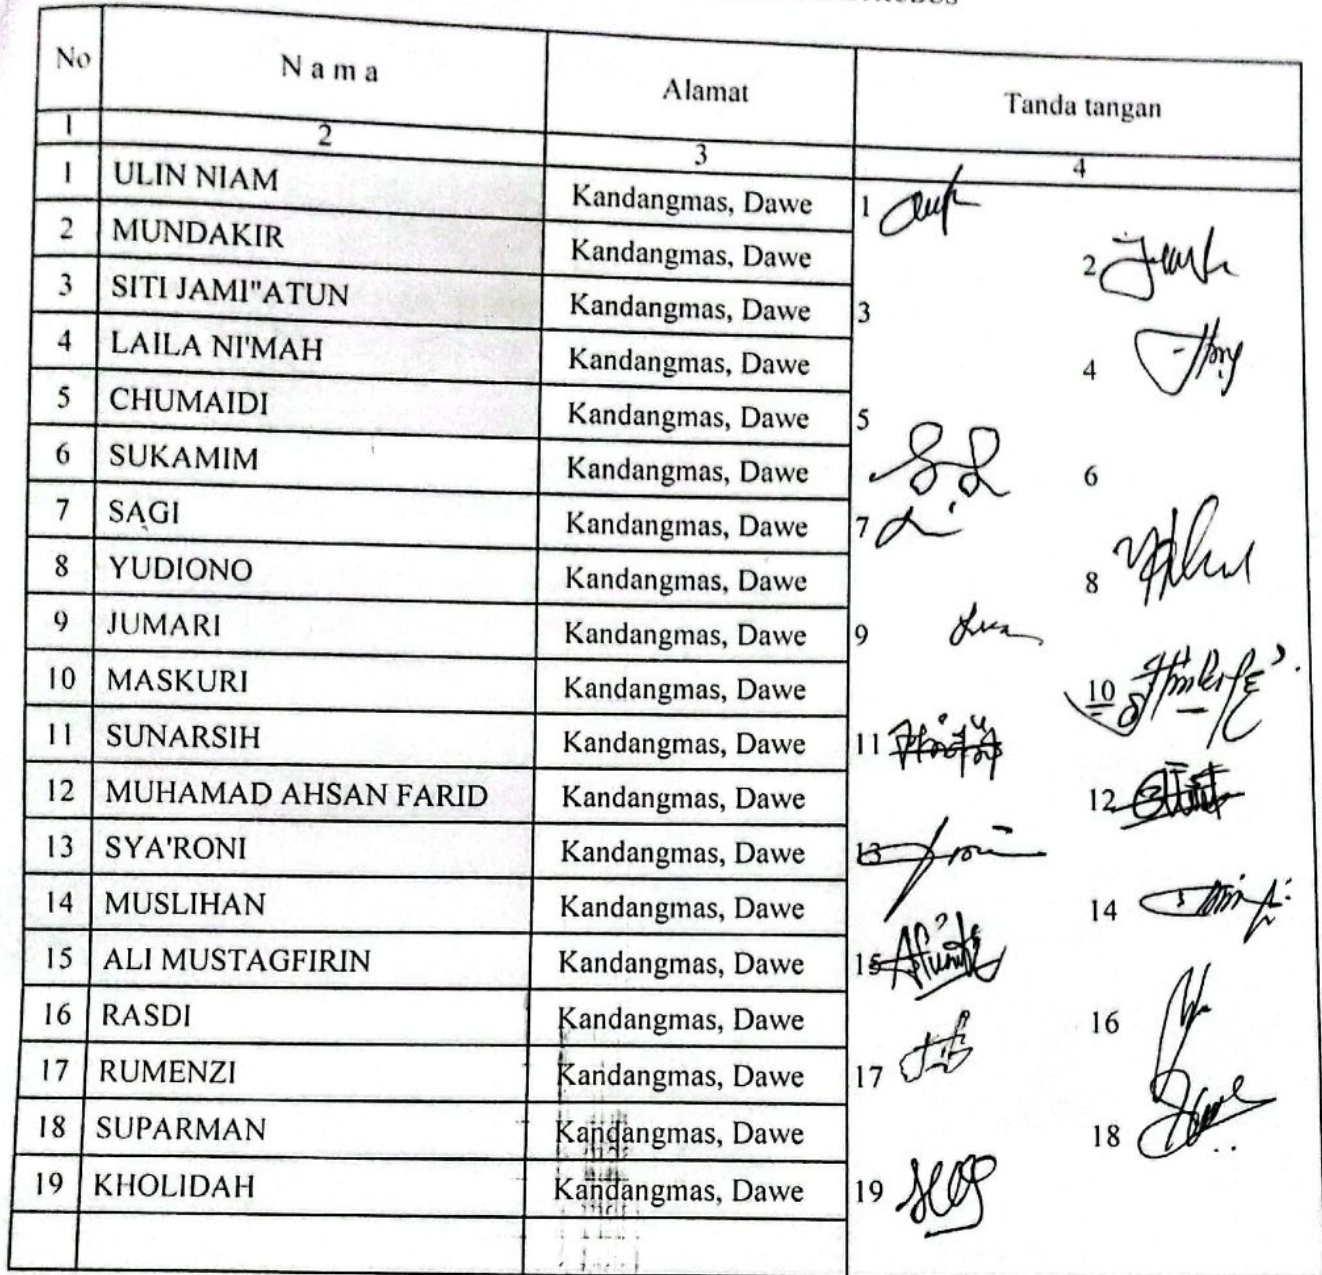 No Nama Alamat Tanda tangan
1 2 3 4
1 ULIN NIAM Kandangmas, Dawe 1
2 MUNDAKIR Kandangmas, Dawe 2
3 SITI JAMI"ATUN Kandangmas, Dawe 3
4 LAILA NI'MAH Kandangmas, Dawe 4
5 CHUMAIDI Kandangmas, Dawe 5
6 SUKAMIM Kandangmas, Dawe 6
7 SAGI Kandangmas, Dawe 7
8 YUDIONO Kandangmas, Dawe 8
9 JUMARI Kandangmas, Dawe 9
10 MASKURI Kandangmas, Dawe 10
11 SUNARSIH Kandangmas, Dawe 11
12 MUHAMAD AHSAN FARID Kandangmas, Dawe 12
13 SYA'RONI Kandangmas, Dawe 13
14 MUSLIHAN Kandangmas, Dawe 14
15 ALI MUSTAGFIRIN Kandangmas, Dawe 15
16 RASDI Kandangmas, Dawe 16
17 RUMENZI Kandangmas, Dawe 17
18 SUPARMAN Kandangmas, Dawe 18
19 KHOLIDAH Kandangmas, Dawe 19